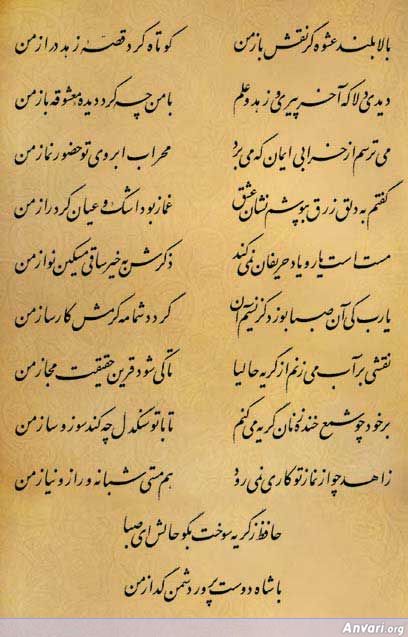 بالابلند عشوه گر نقش باز من کوتاه کرد قصهٔ زهد دراز من
دیدی دلا که آخر پیری و زهد و علم با من چه کرد دیده معشوقه باز من
می ترسم از خرابی ایمان که می برد محراب ابروی تو حضور نماز من
گفتم به دلق زرق بپوشم نشان عشق غماز بود اشک و عیان کرد راز من
مست است یار و یاد حریفان نمی کند ذکرش به خیر ساقی مسکین نواز من
یا رب کی آن صبا بوزد کز نسیم آن گردد شمامه کرمش کارساز من
نقشی بر آب می زنم از گریه حالیا تا کی شود قرین حقیقت مجاز من
بر خود چو شمع خنده زنان گریه می کنم تا با تو سنگدل چه کند سوز و ساز من
زاهد چو از نماز تو کاری نمی رود هم مستی شبانه و راز و نیاز من
حافظ ز گریه سوخت بگو حالش ای صبا
با شاه دوست پرور دشمن گداز من
Anvari.org